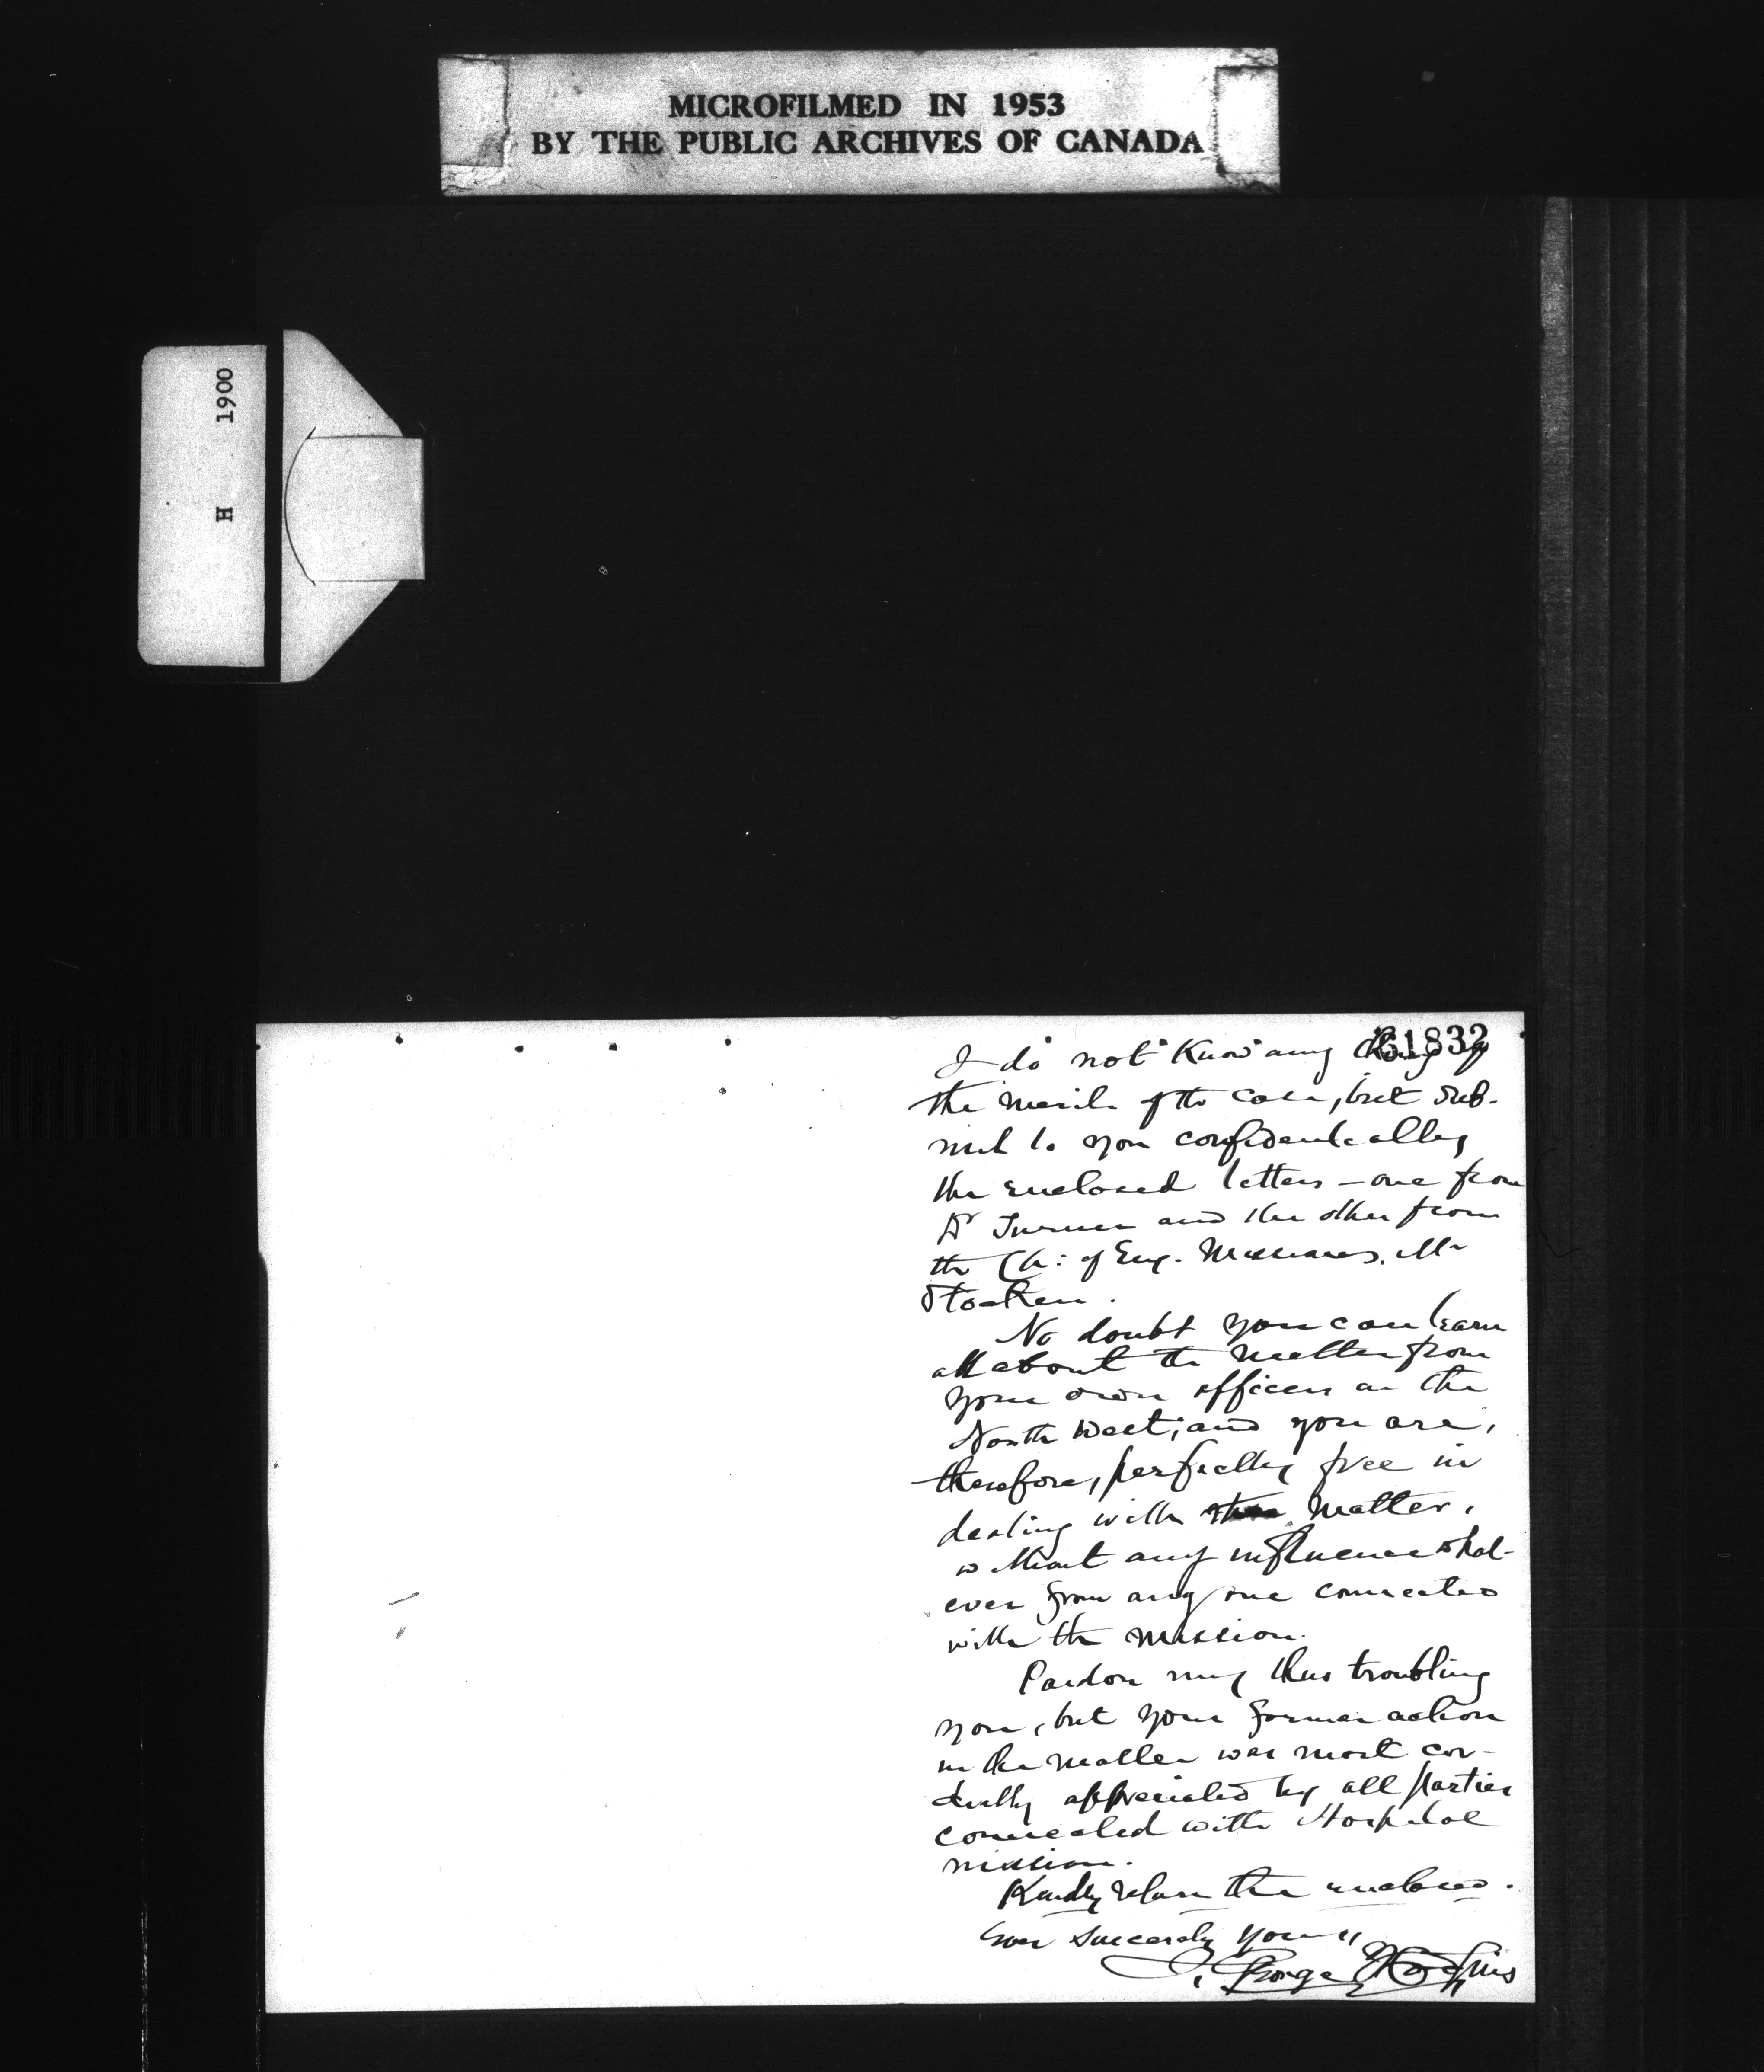 MICROFILMED IN 1953
BY THE PUBLIC ARCHIVES OF CANADA
H 1900
61832
I do not know any thing of
the merits of the case, but sub-
mit to you confidentially
the enclosed letters – one from
Dr Turner and the other from
the Ch: of Eng. Missionary, Mr
Stocken.
No doubt you can learn
all about the matter from
your own officers in the
North West; and you are,
therefore, perfectly free in
dealing with the matter,
without any influence what-
ever from any one connected
with the mission.
Pardon my thus troubling
you, but your former action
in the matter was most cor-
dially appreciated by all parties
connected with Hospital
mission.
Kindly return the enclosed.
Ever sincerely yours
J. George Hodgins